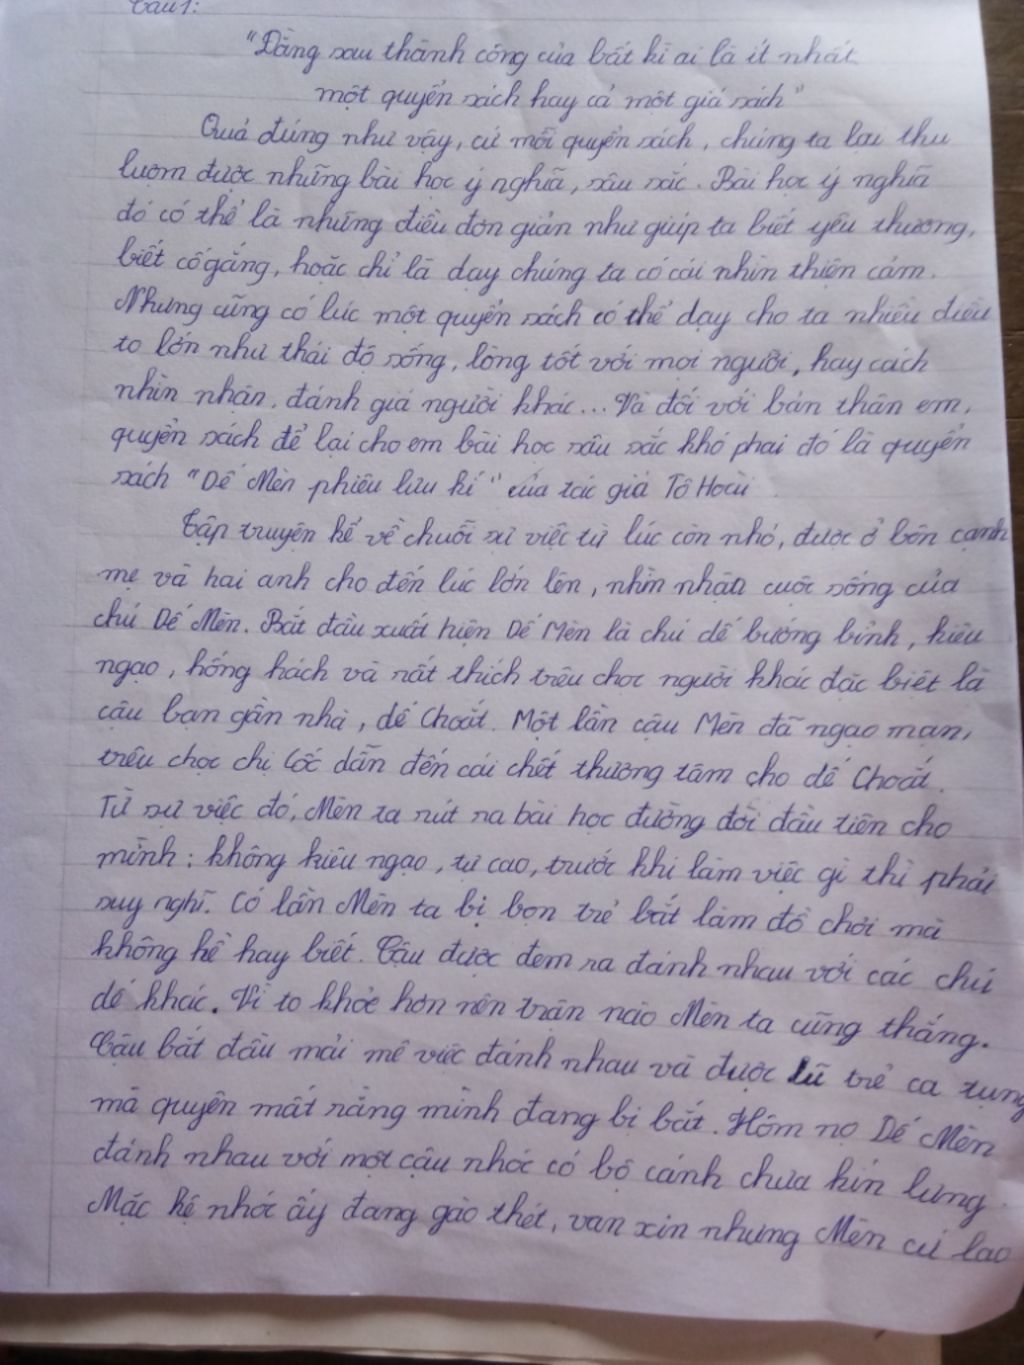 Câu 1:
"Đằng sau thành công của bất kì ai là ít nhất
một quyển sách hay cả một giá sách"
Quả đúng như vậy, cứ mỗi quyển sách, chúng ta lại thu
lượm được những bài học ý nghĩa, sâu sắc. Bài học ý nghĩa
đó có thể là những điều đơn giản như giúp ta biết yêu thương,
biết cố gắng, hoặc chỉ là dạy chúng ta có cái nhìn thiện cảm.
Nhưng cũng có lúc một quyển sách có thể dạy cho ta nhiều điều
to lớn như thái độ sống, lòng tốt với mọi người, hay cách
nhìn nhận, đánh giá người khác... Và đối với bản thân em,
quyển sách để lại cho em bài học sâu sắc khó phai đó là quyển
sách "Dế Mèn phiêu lưu kí" của tác giả Tô Hoài
Tập truyện kể về chuỗi sự việc từ lúc còn nhỏ, được ở bên cạnh
mẹ và hai anh cho đến lúc lớn lên, nhìn nhận cuộc sống của
chú Dế Mèn. Bắt đầu xuất hiện Dế Mèn là chú dế bướng bỉnh, kiêu
ngạo, hống hách và rất thích trêu chọc người khác đặc biệt là
cậu bạn gần nhà, dế Choắt. Một lần cậu Mèn đã ngạo mạn,
trêu chọc chị Cốc dẫn đến cái chết thương tâm cho dế Choắt.
Từ sự việc đó, Mèn ta rút ra bài học đường đời đầu tiên cho
mình: không kiêu ngạo, tự cao, trước khi làm việc gì thì phải
suy nghĩ. Có lần Mèn ta bị bọn trẻ bắt làm đồ chơi mà
không hề hay biết. Cậu được đem ra đánh nhau với các chú
dế khác. Vì to khỏe hơn nên trận nào Mèn ta cũng thắng.
Cậu bắt đầu mải mê việc đánh nhau và được lũ trẻ ca tụng
mà quyên mất rằng mình đang bị bắt. Hôm nọ Dế Mèn
đánh nhau với một cậu nhóc có bộ cánh chưa kín lưng.
Mặc kệ nhóc ấy đang gào thét, van xin nhưng Mèn cứ lao